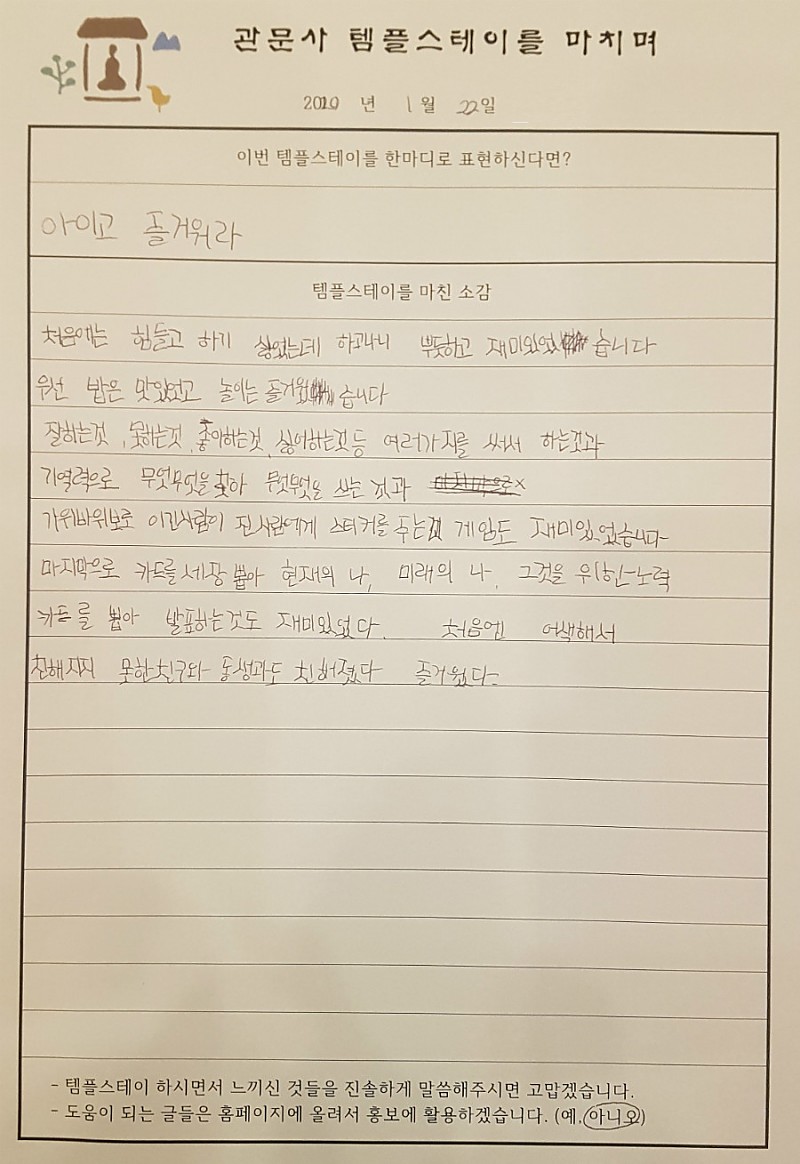 관문사 템플스테이를 마치며
2020 년 1 월 22일
이번 템플스테이를 한마디로 표현하신다면?
아이고 즐거워라
템플스테이를 마친 소감
처음에는 힘들고 하기 싫었는데 하고나니 뿌듯하고 재미있었습니다
우선 밥은 맛있었고 놀이는 즐거웠습니다
잘하는것, 못하는것, 좋아하는것, 싫어하는것 등 여러가지를 써서 하는것과
기억력으로 무엇무엇을 찾아 무엇무엇을 쓰는 것과
가위바위보로 이긴사람이 진사람에게 스티커를 주는 게임도 재미있었습니다
마지막으로 카드를 세장 뽑아 현재의 나, 미래의 나, 그것을 위한 노력
카드를 뽑아 발표하는것도 재미있었다. 처음엔 어색해서
친해지지 못한친구와 동생과도 친해졌다 즐거웠다
- 템플스테이 하시면서 느끼신 것들을 진솔하게 말씀해주시면 고맙겠습니다.
- 도움이 되는 글들은 홈페이지에 올려서 홍보에 활용하겠습니다. (예, 아니오)